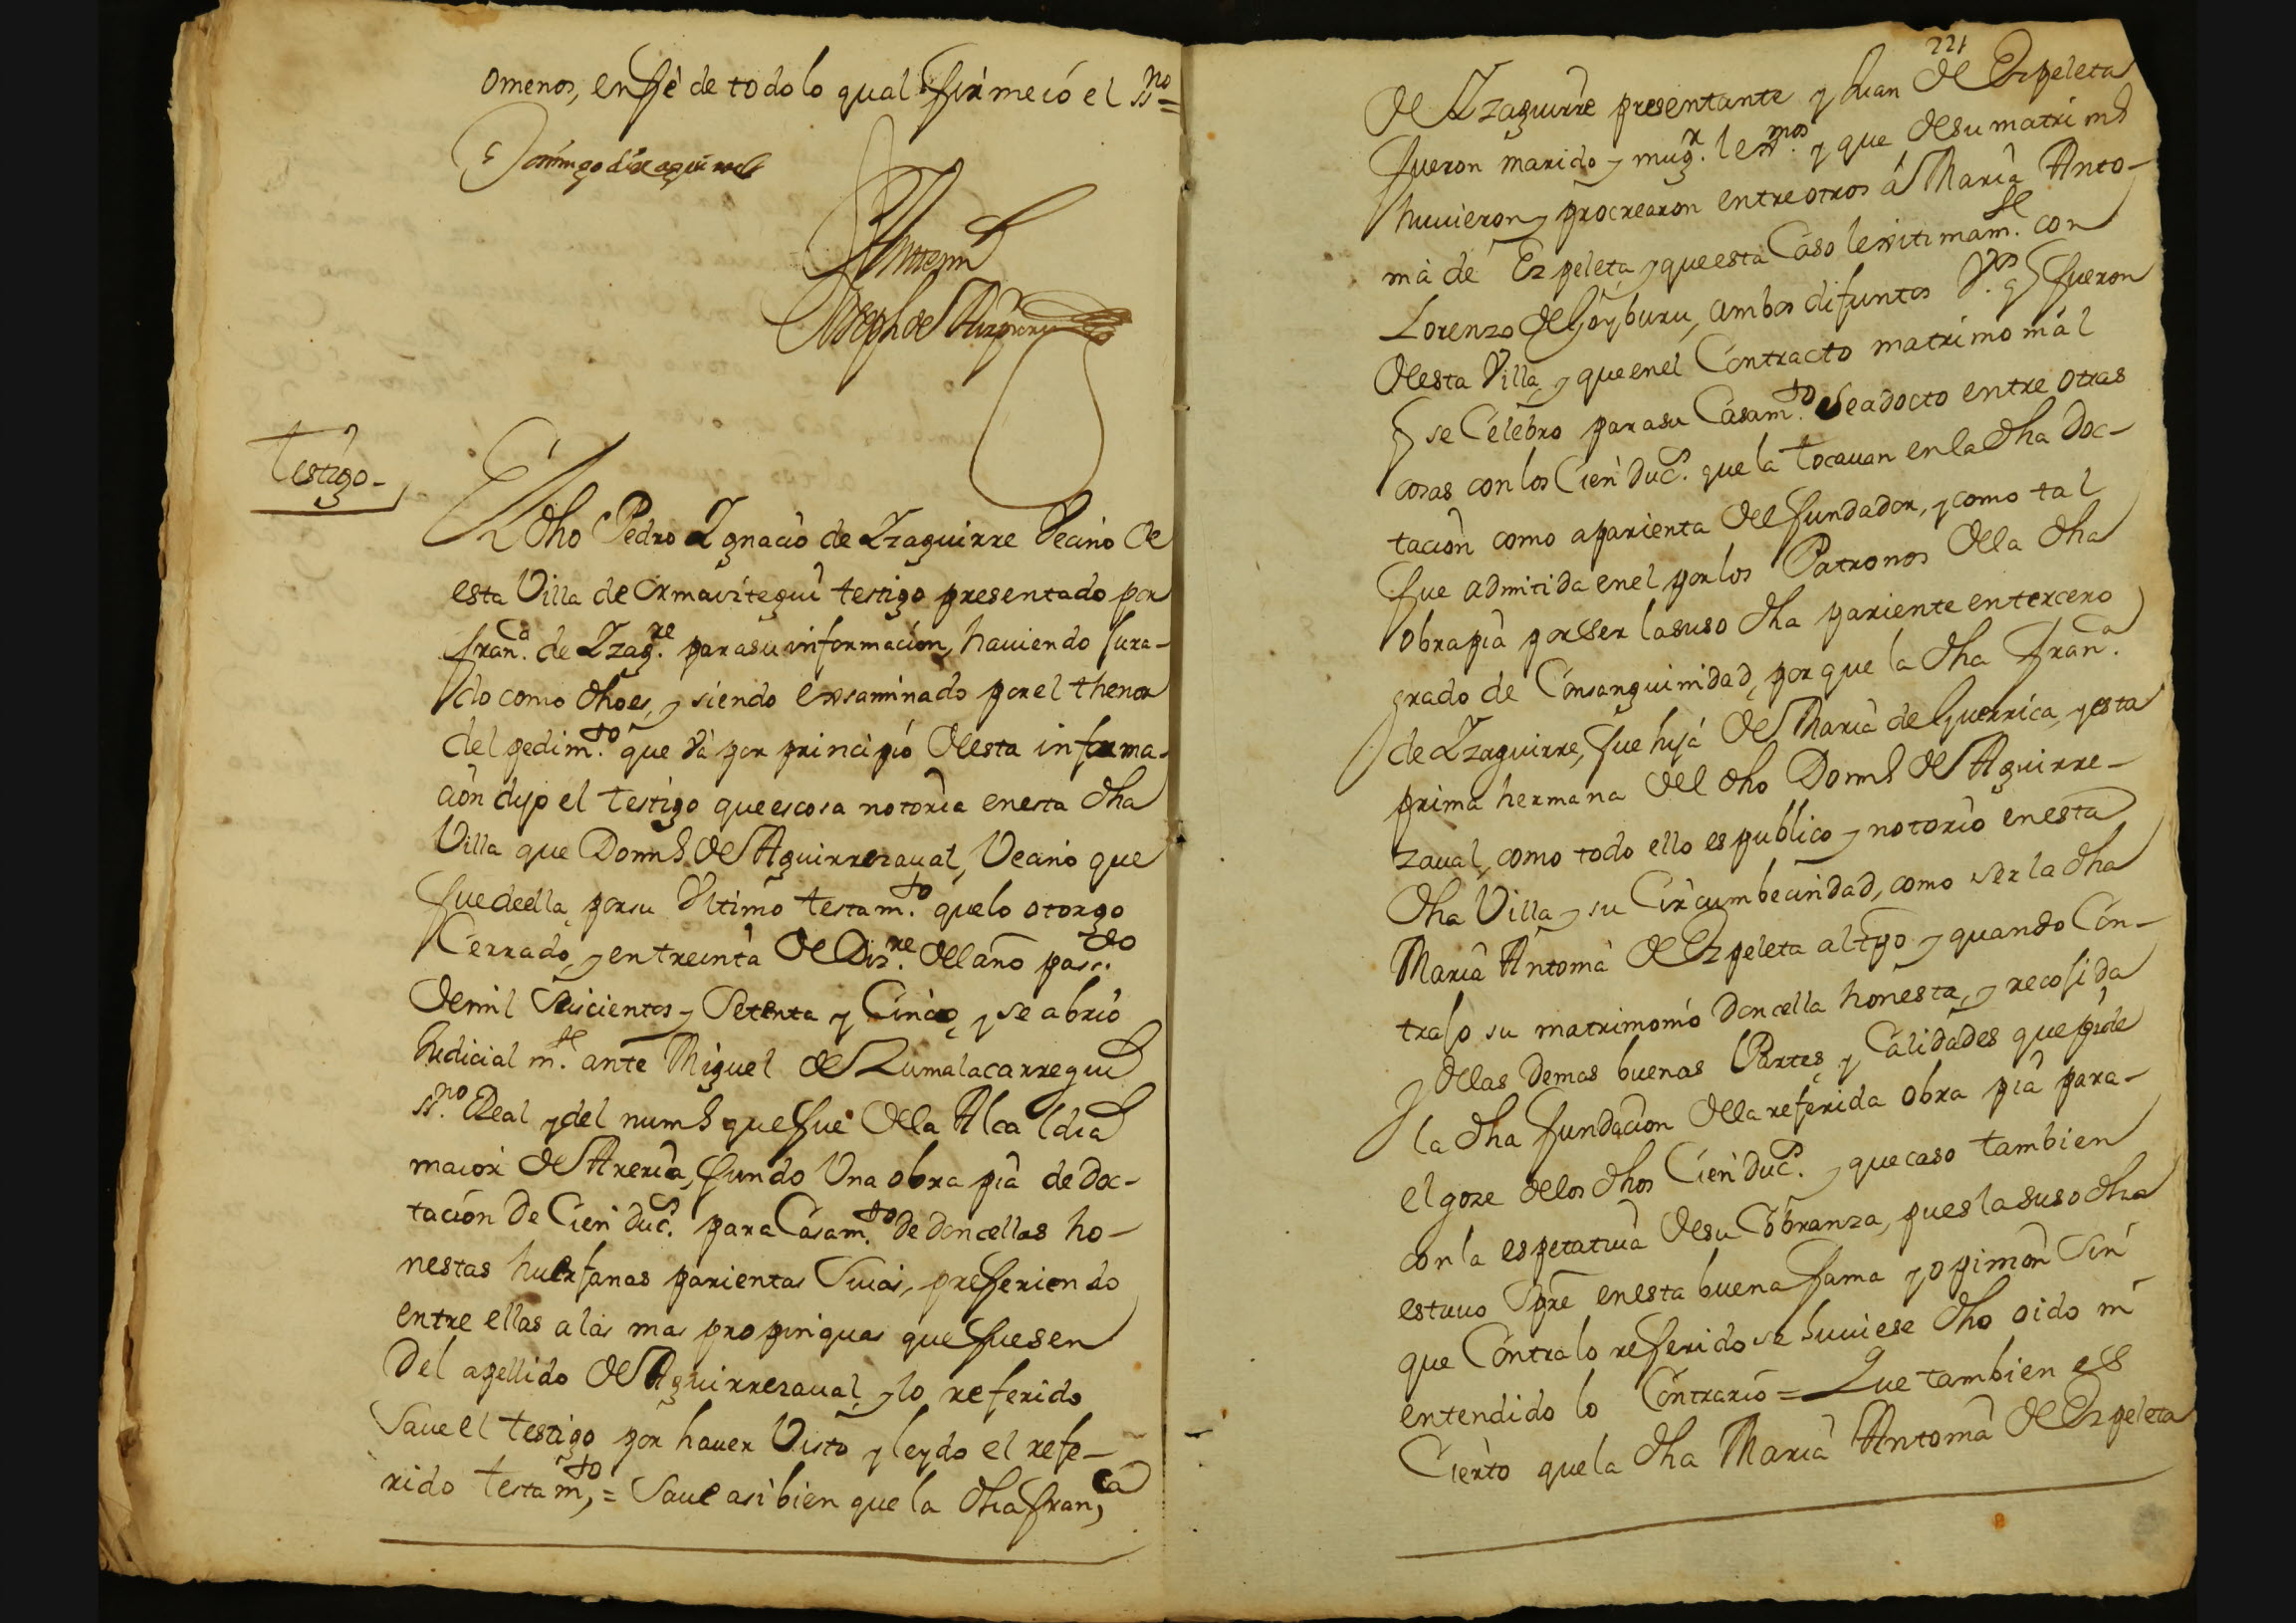 omenos, en fè de todo lo qual firme ió el ss.no =
Domingo de
Ante mi
Joseph de
Testigo -
El dho Pedro Ygnacio de Yzaguirre Vecino de
esta Villa de Ormaiztegui testigo presentado por
fran.ca de Yzag.re para su informacion, hauiendo Jura-
do como dho es, y siendo exsaminado por el thenor
del pedim.to que và por principio desta informa-
cion dijo el testigo que es cosa notoria en esta dha
Villa que Dom.o de Aguirrezaual, Vecino que
fue de ella, por su Vltimo testam.to que lo otorgo
Cerrado, y en treinta de Diz.re del año pas.do
de mil Seiscientos y Setenta y Cinco, y se abrio
Judicial m.te ante Miguel de Zumalacarregui
ss.no Real y del num.o que fue de la Alcaldia
maior de Areria, fundo Una obra pia de doc-
tacion de Cien duc.s para Casam.to de doncellas ho-
nestas huerfanas parientas Suias, prefferiendo
entre ellas a las mas propinquas que fuesen
del apellido de Aguirrezaual, y lo referido
Saue el testigo por hauer Visto y leydo el refe-
rido testam.to, = Saue asi bien que la dha fran,ca
221
de Yzaguirre presentante y Juan de Ezpeleta
fueron marido y mug.r lex.mos y que de su matrim.o
huuieron y procrearon entre otros á Maria Anto-
nia de Ezpeleta, y que esta Caso lexitimam.te con
Lorenzo de Goyburu, ambos difuntos V.os q fueron
desta Villa, y que en el Contracto matrimonial
q se Celebro para su Casam.to se adocto entre otras
cosas con los Cien duc.s que la tocauan en la dha doc-
tacion como a parienta del fundador, y como tal
fue admitida en el por los Patronos de la dha
obra pia por ser la suso dha pariente en tercero
grado de Consanguinidad, por que la dha fran.ca
de Yzaguirre, fue hija de Maria de Guerrica, y esta
prima hermana del dho Dom.o de Aguirre-
zaual, como todo ello es publico y notorio en esta
dha Villa y su Circumbecindad, como ser la dha
Maria Antonia de Ezpeleta al tpo y quando Con-
trajo su matrimonio doncella honesta, y recojida
y de las demas buenas Partes, y Calidades que pide
la dha fundacion de la referida obra pia para
el goze de los dhos Cien duc.s y que caso tambien
con la espetatiua de su Cobranza, pues la suso dha
estuuo Spre en esta buena fama y opinion Sin
que Contra lo refferido se huuiese dho oido ni
entendido lo Contrario = Que tambien es
Cierto que la dha Maria Antonia de Ezpeleta